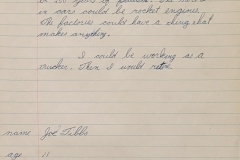 in cars could be rocket engines.
The factories could have a thing that
makes anything.
I could be working as a
Then I would
name Joe Tibbs
age 11